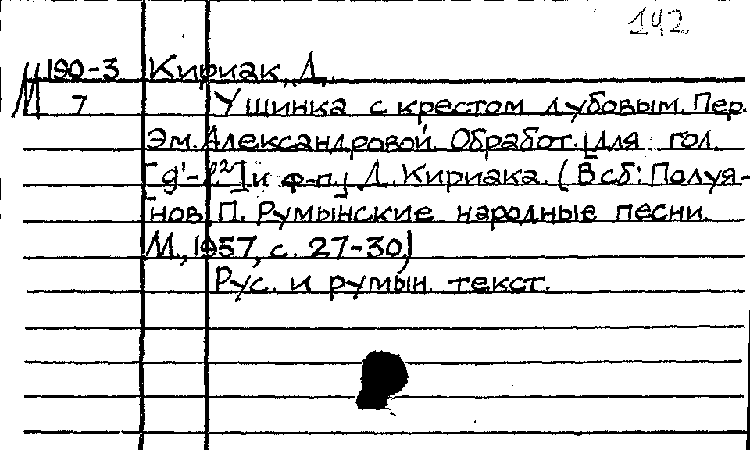 142
М 190-3 Кириак, Д.
7 У шинка с крестом дубовым. Пер.
Эм. Александровой. Обработ. [для гол.
[g'-f²] и ф-п.] Д. Кириака. (В сб: Полуя-
нов П. Румынские народные песни.
М., 1957, с. 27-30)
Рус. и румын. текст.